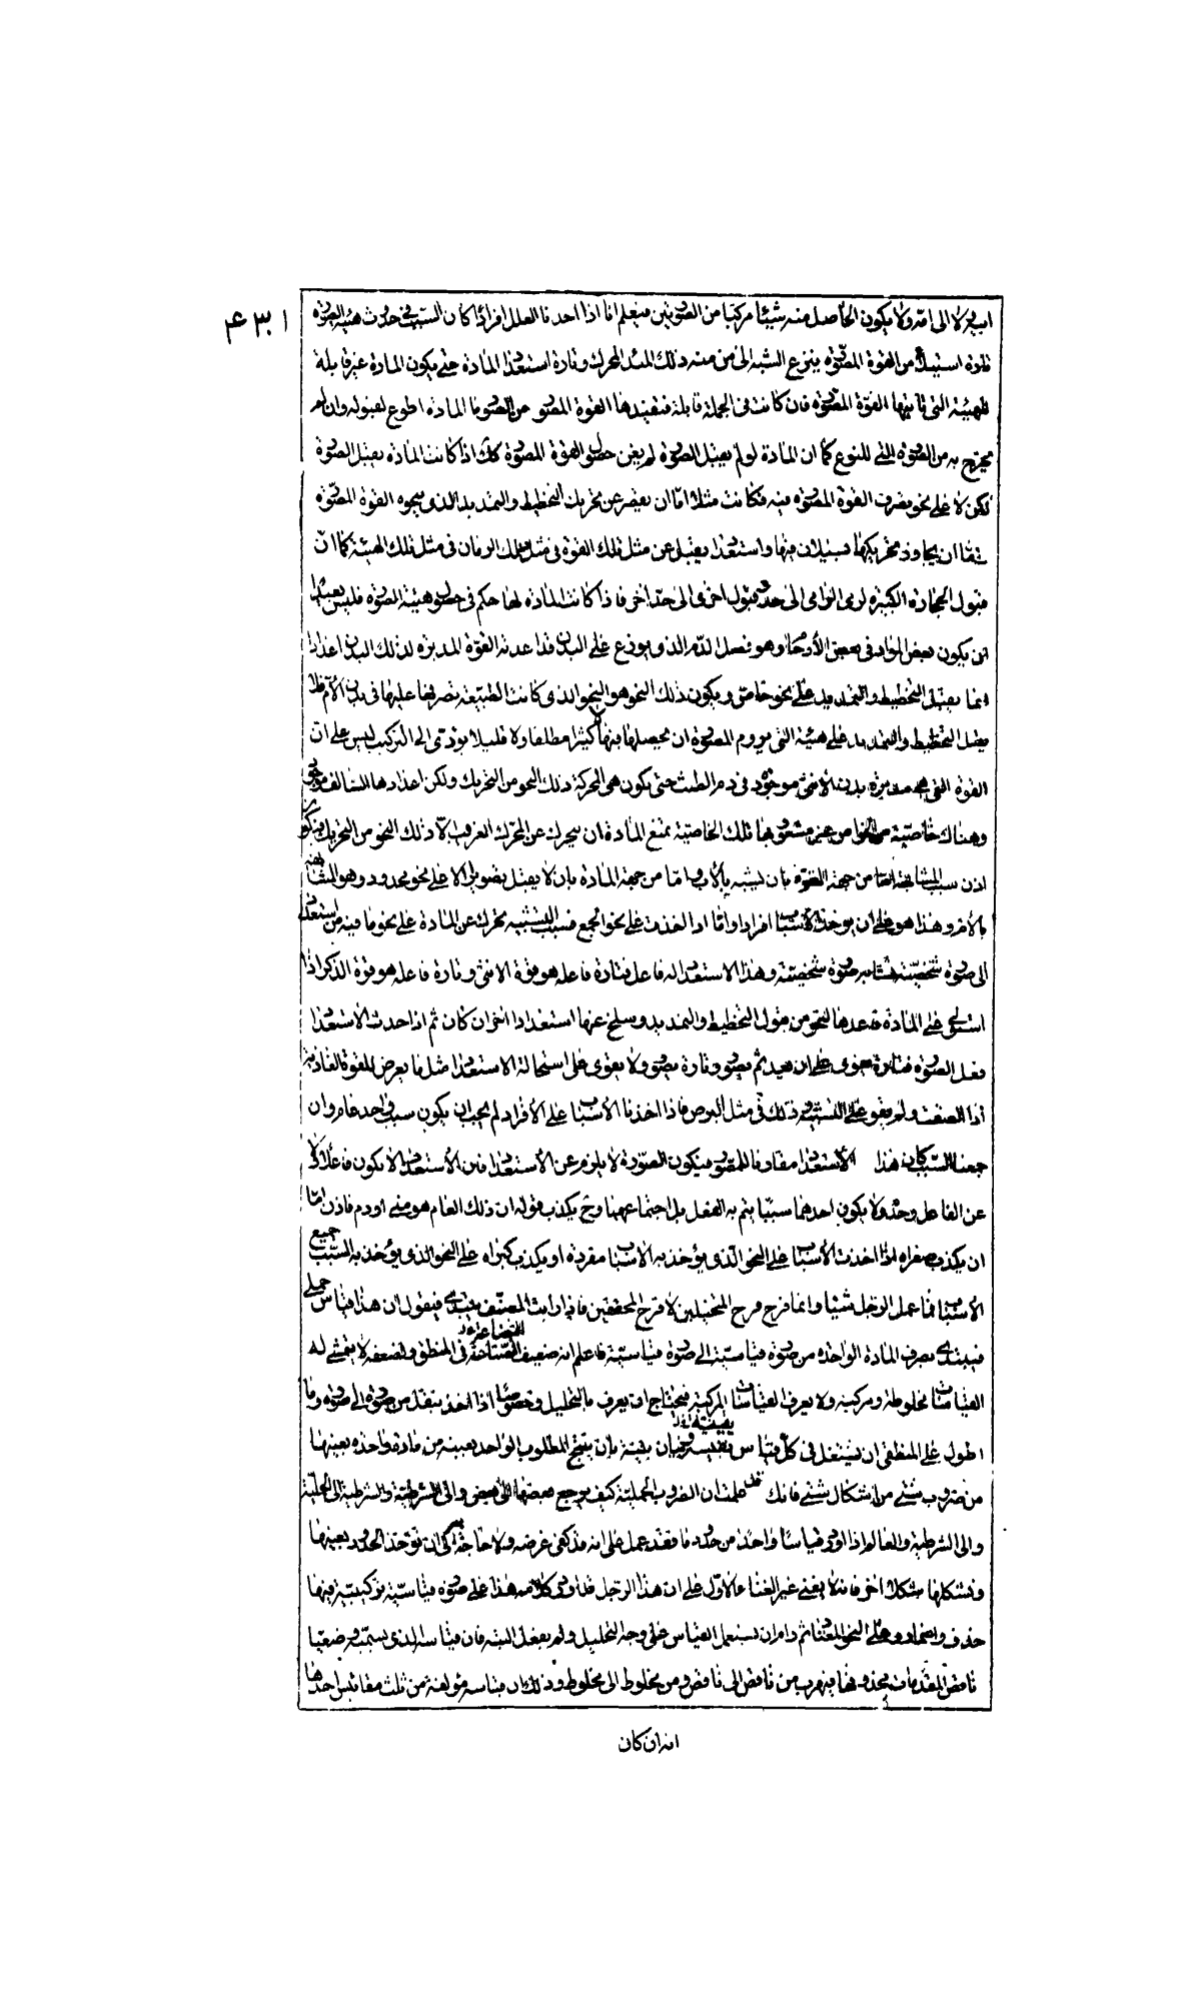 ۴۳۱
ابيه لا الى امه ولا يكون الحاصل منه شيئا مركبا من الصورتين فيعلم انا اذا اخذنا العلل افرادا كان السبب فى حدوث هيئة الصورة
تارة استيلاء من القوة المصورة ينزع الشبه الى من منه ذلك المبدء المحرك وتارة استعداد المادة حتى يكون المادة غير قابلة
للهيئة التى تاتيها القوة المصورة فان كانت فى الجملة قابلة فتفيدها القوة المصورة من الصور ما المادة اطوع لقبوله وان لم
يخرج به من الصورة التى للنوع كما ان المادة لو لم يقبل الصورة لم يغن حصول القوة المصورة كك اذا كانت المادة يقبل الصورة
لكن لا على نحو يصرف القوة المصورة فيه فكانت مثلا اما ان يقصر عن تحريك التخطيط والتمديد الذى ينحوه القوة المصورة
فيها ان يجاوز تحريكها فسيلان فيها واستعداد يقبل عن مثل تلك القوة فى مثل تلك الزمان فى مثل تلك الهيئة كما ان
قبول الحجارة الكبيرة لرمى الرامى الى حد وقبول اخرى الى حد اخر فاذا كانت المادة لها حكم فى حصول هيئة الصورة فليس ببعيد
ان يكون بعض المواد فى بعض الأرحام وهو فضل الدم الذى يوزع على البدن قد اعدته القوة المدبرة لذلك البدن اعدادا
انما يقبل التخطيط والتمديد على نحو خاص ويكون ذلك النحو هو النحو الذى كانت الطبيعة تصرفها عليها فى بدن الأم فلا
يقبل التخطيط والتمديد على هيئة التى يروم المصورة ان يحصلها فيها لا كثيرا مطلقا ولا قليلا يؤدى الى التركيب ليس على ان
القوة التى هى مدبرة بدن الأنثى موجودة فى دم الطمث حتى يكون هى المحركة ذلك النحو من التحريك ولكن اعدادها السالف
وهناك خاصية من الخواص غير مشعور بها تلك الخاصية تمنع المادة ان يتحرك عن المحرك الغريب الا ذلك النحو من التحريك فيكون
اذن سبب المشابهة اما من جهة القوة بان يشبه بالأب واما من جهة المادة بان لا يقبل تصويرا الا على نحو محدود وهو المشابهة
بالام وهذا هو على ان يوخذ الأسباب افرادا واما اذا اخذت على نحو الجمع فسبب التشبيه تحرك عن المادة على نحو ما فيه من استعداد
الى صورة شخصية مشابه صورة شخصية وهذا الاستعداد له فاعل فتارة فاعله هو قوة الانثى وتارة فاعله هو قوة الذكر اذا
استولى على المادة فتعدها لنحو من قبول التخطيط والتمديد ويسلخ عنها استعدادا اخر ان كان ثم اذا حدث الأستعداد
فعل الصورة فتارة يقوى على ان يعيد ثم يصور وتارة يصور ولا يقوى على استحالة الاستعداد مثل ما يعرض للقوة الغاذية
اذا الصقت ولم يقو على التشبيه وذلك فى مثل البرص فاذا اخذنا الأسباب على الأفراد لم يجب ان يكون سبب واحد عام وان
جمعنا السبب كان هذا الأستعداد مقارنا للمصور فيكون الصورة لا يلزم عن الأستعداد فان الأستعداد لا يكون فاعلا ولا
عن الفاعل وحده ولا يكون احدهما سببا يتم به الفعل بل اجتماعهما وح يكذب قوله ان ذلك العام هو منى او دم فاذن اما
ان يكذب صغراه اذا اخذت الأسباب على النحو الذى يؤخذ به الأسباب مفردة او يكذب كبراه على النحو الذى يؤخذ به السبب جميع
الأسباب فما عمل الرجل شيئا وانما فرح فرح المتخيلين لا فرح المحققين فاذا رايت المصنف يبتدى فيقول ان هذا قياس حملى
فيبتدى يصرف المادة الواحدة من صورة قياسية الى صورة قياسية فاعلم انه ضعيف الصناعة فى المنطق ولضعفه لا يتمشى له
القياسات مخلوطة ومركبة ولا يعرف القياسات المركبة فيحتاج ان يعرف بالتحليل وخصوصا اذا اخذ ينتقل من صورة الى صورة وما
اطول على المنطقى ان يشتغل فى كل قياس بان ينتج المطلوب الواحد بعينه من مادة واحدة بعينها
من ضروب شتى من اشكال شتى فانك قد علمت ان الضروب الحملية كيف يرجع بعضها الى بعض والى الشرطية والشرطية الى الحملية
والى الشرطية والعالم اذا اورد قياسا واحدا من حدود ما فقد عمل على انه قد كفى غرضه ولا حاجة به الى ان توخذ الحدود بعينها
وتشكلها بشكل اخر فانه لا يغنى غير الغناء الأول على ان هذا الرجل قد اورد كلامه هذا على صورة قياسية تركيبية فيها
حذف واضمار وعلى النحو المعتاد ثم رام ان يستعمل القياس على وجه التحليل ولم يفعل البتة فان قياسه الذى يسميه وضعيا
ناقص المقدمات محذوفها فيهرب من ناقص الى ناقص ومن مخلوط الى مخلوط وذلك ان قياسه مؤلفة من ثلث مقائيس احدها
انه ان كان